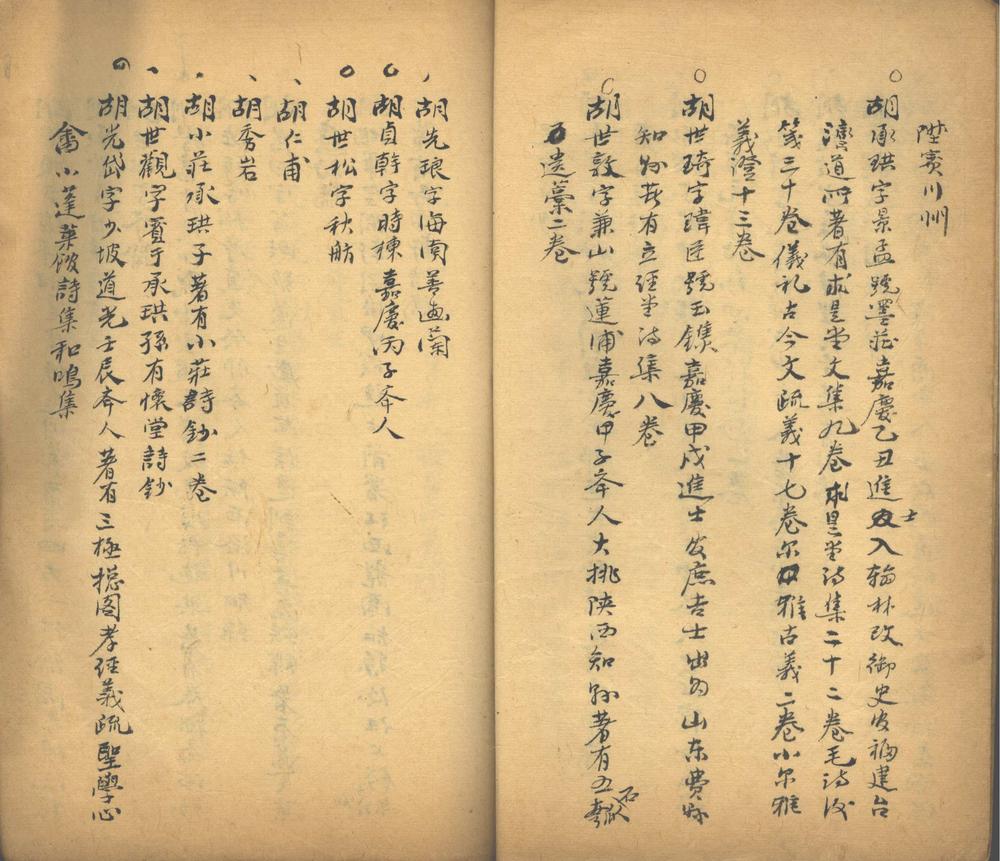 陞賓川州
胡承珙字景孟號墨莊嘉慶乙丑進士入翰林改御史官福建台
灣道所著有求是堂文集九卷求是堂詩集二十二卷毛詩後
箋三十卷儀礼古今文疏義十七卷尔雅古義二卷小尔雅
義證十三卷
胡世琦字瑋臣號玉鐫嘉慶甲戌進士發庶吉士出為山东费縣
知縣著有立經堂詩集八卷
胡世敦字兼山號蓮浦嘉慶甲子举人大挑陕西知縣著有石人
遗藁二卷
胡先琅字海閬善画蘭
胡貞幹字時棟嘉慶丙子举人
胡世松字秋舫
胡仁甫
胡秀岩
胡小莊承珙子著有小莊詩鈔二卷
胡世觀字賓于承珙孫有懷堂詩鈔
胡光岱字少坡道光壬辰举人著有三極樓图孝经義疏聖學心
畲小蓬萊馆詩集和鳴集